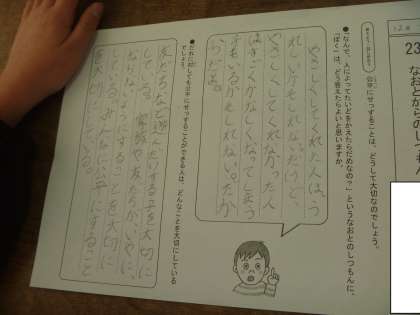 23
なおとからのしつもん
公平にせっすることは、どうして大切なのでしょう。
●「なんで、人によってたいどをかえたらだめなの?」というなおとのしつもんに、
「ぼく」は、どう答えたらよいと思いますか。
やさしくしてくれた人は、う
れしいかもしれない。だけど、
やさしくしてくれなかった人
はすごくかなしくなってしまう
子もいるかもしれない。だか
らだよ。
●だれに対しても公平にせっすることができる人は、どんなことを大切にしている
でしょう。
友だちなど遊んだりすることを大切に
している。家族や友だちが、いやに
ならないようにすることを大切に
している。みんなに公平にすること
を大切にしている。